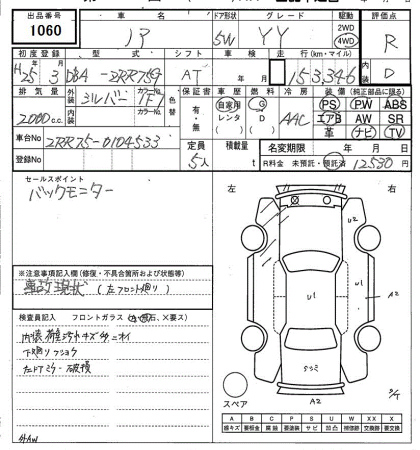 出品番号 車名 ドア形状 グレード 駆動 評価点
1060 ノア 5W YY 2WD 4WD R
初度登録 型式 シフト 車検 走行(km・マイル)
H25 3 DBA-ZRR75G AT 153346 D
排気量 外装 カラーNo. 内装 カラーNo. 色替 保証書 車歴 燃料 冷房 装備(純正部品に限る)
2000c.c. シルバー 1F7 有・無 自家用 レンタ G D AAC PS PW ABS
エアB AW SR
革 ナビ TV
車台No ZRR75-0104533 定員 5人 積載量 t 名変期限 年 月 日
登録No R料金 未預託・預託済 12530円
セールスポイント
バックモニター
左 右
※注意事項記入欄(修復・不具合箇所および状態等)
事故現状 (左フロント廻り)
検査員記入 フロントガラス(石、X要ス)
内装 荷室シート キズ
下廻り
左ドアミラー破損
社外AW
U2
U1
U1
A2
A2
スペア
A B C P S U W X XX X
線キズ 要板金 腐蝕 要塗装 サビ 凹凸 補修跡 交換跡 要交換